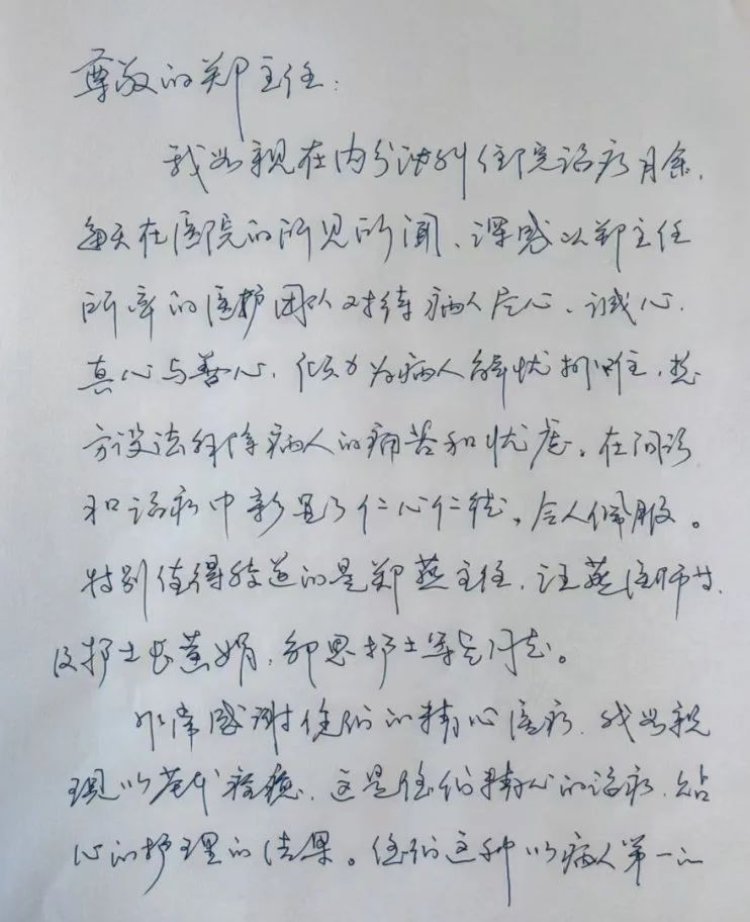 尊敬的郑主任：
我母亲在内分泌科住院治疗月余，
每天在医院的所见所闻、深感以郑主任
所率的医护团队对待病人尽心、诚心、
真心与善心，倾力为病人解忧排难，想
方设法解除病人的痛苦和忧虑。在问诊
和治疗中彰显了仁心仁德，令人佩服。
特别值得称道的是郑燕主任，汪燕医师
及护士长黄娟，护士等同志。
非常感谢您们的精心医疗，我母亲
现以基本稳定，这是您们精心的治疗，贴
心的护理的结果。您们这种以病人第一的